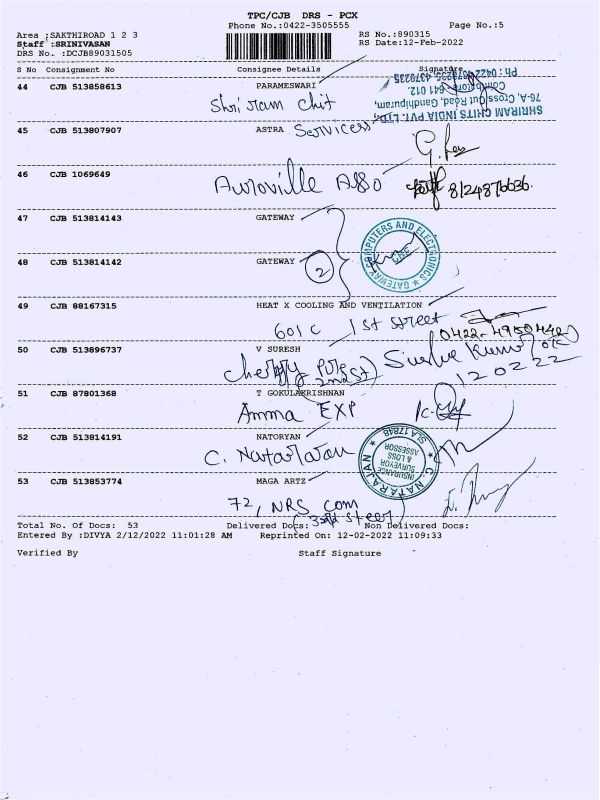 TPC/CJB DRS - PCX
Phone No.:0422-3505555 Page No.:5
Area :SAKTHIROAD 1 2 3 RS No.:890315
Staff :SRINIVASAN RS Date:12-Feb-2022
DRS No. :DCJB89031505
S No Consignment No Consignee Details Signature
44 CJB 513858613 PARAMESWARI
Shri ram chit
SHRIRAM CHITS INDIA PVT. LTD.,
76-A, Cross Cut Road, Gandhipuram,
Coimbatore - 641 012.
Ph : 0422-4379225, 4379235
45 CJB 513807907 ASTRA Services
46 CJB 1069649
Auroville Asso 8124876636.
47 CJB 513814143 GATEWAY
GATEWAY COMPUTERS AND ELECTRONICS
48 CJB 513814142 GATEWAY 2
49 CJB 88167315 HEAT X COOLING AND VENTILATION
601 C 1st street 0422-4950442
50 CJB 513896737 V SURESH
2nd St) 120222
51 CJB 87801368 T GOKULAKRISHNAN
Amma EXP
52 CJB 513814191 NATORYAN
C. Natarajan
C. NATARAJAN SLA 17848
INSURANCE
SURVEYOR
& LOSS
ASSESSOR
53 CJB 513853774 MAGA ARTZ
72, NRS com
Total No. Of Docs: 53 Delivered Docs: Non Delivered Docs:
Entered By :DIVYA 2/12/2022 11:01:28 AM Reprinted On: 12-02-2022 11:09:33
Verified By Staff Signature